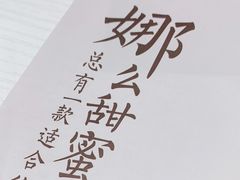 娜么甜蜜
总有一款适合